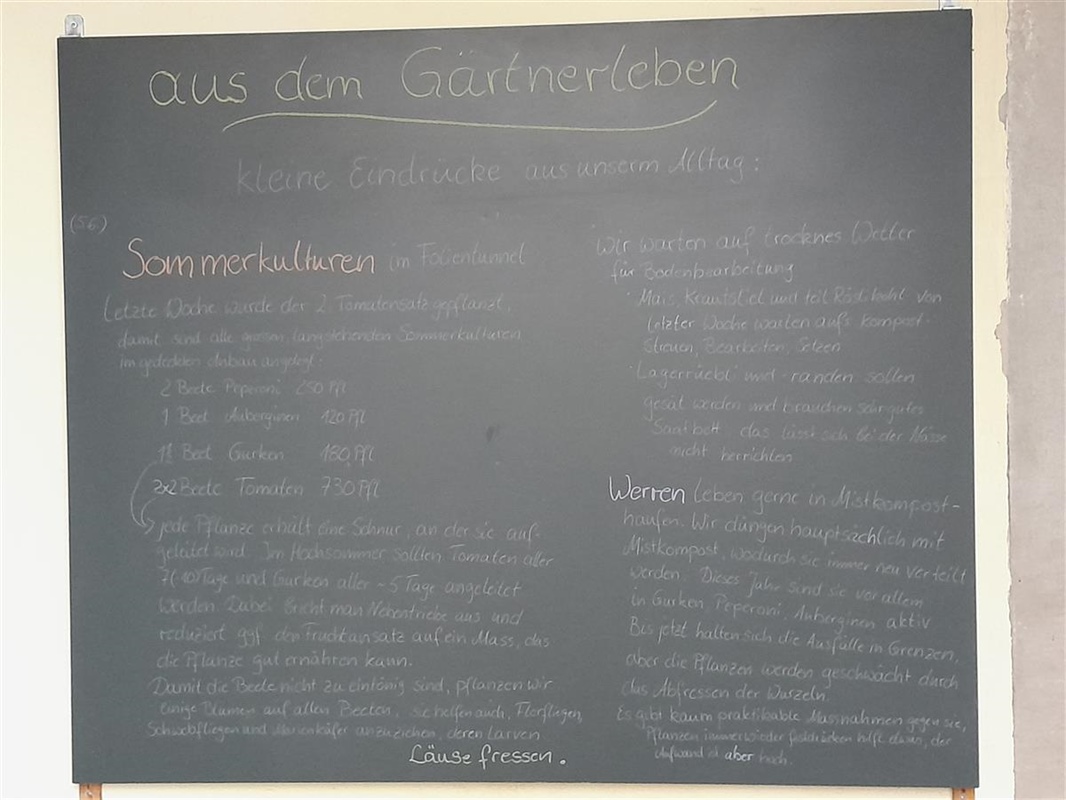 aus dem Gärtnerleben
kleine Eindrücke aus unserm Alltag:
(5.6)
Sommerkulturen im Folientunnel
Letzte Woche wurde der 2. Tomatensatz gepflanzt,
damit sind alle grossen, langstehenden Sommerkulturen
im gedeckten Anbau angelegt:
2 Beete Peperoni 250 Pfl
1 Beet Auberginen 120 Pfl
Beet Gurken 180 Pfl
2x2 Beete Tomaten 730 Pfl
jede Pflanze erhält eine Schnur, an der sie auf-
geleitet wird. Im Hochsommer sollten Tomaten aller
7(-10) Tage und Gurken aller - 5 Tage angeleitet
werden. Dabei bricht man Nebentriebe aus und
reduziert ggf. den Fruchtansatz auf ein Mass, das
die Pflanze gut ernähren kann.
Damit die Beete nicht zu eintönig sind, pflanzen wir
einige Blumen auf allen Beeten, sie helfen auch, Florfliegen,
Schwebfliegen und Marienkäfer anzuziehen, deren Larven
Läuse fressen.
Wir warten auf trocknes Wetter
für Bodenbearbeitung
Mais, Krautstiel und teil Rosenkohl von
letzter Woche warten aufs Kompost-
Streuen, Bearbeiten, Setzen
Lagerrüebli und -randen sollen
gesät werden und brauchen sehr gutes
Saatbett, das lässt sich bei der Nässe
nicht herrichten
Werren leben gerne in Mistkompost-
haufen. Wir düngen hauptsächlich mit
Mistkompost, wodurch sie immer neu verteilt
werden. Dieses Jahr sind sie vor allem
in Gurken, Peperoni, Auberginen aktiv
Bis jetzt halten sich die Ausfälle in Grenzen,
aber die Pflanzen werden geschwächt durch
das Abfressen der Wurzeln.
Es gibt kaum praktikable Massnahmen gegen sie,
Pflanzen immer wieder festdrücken hilft etwas, der
Aufwand ist aber hoch.